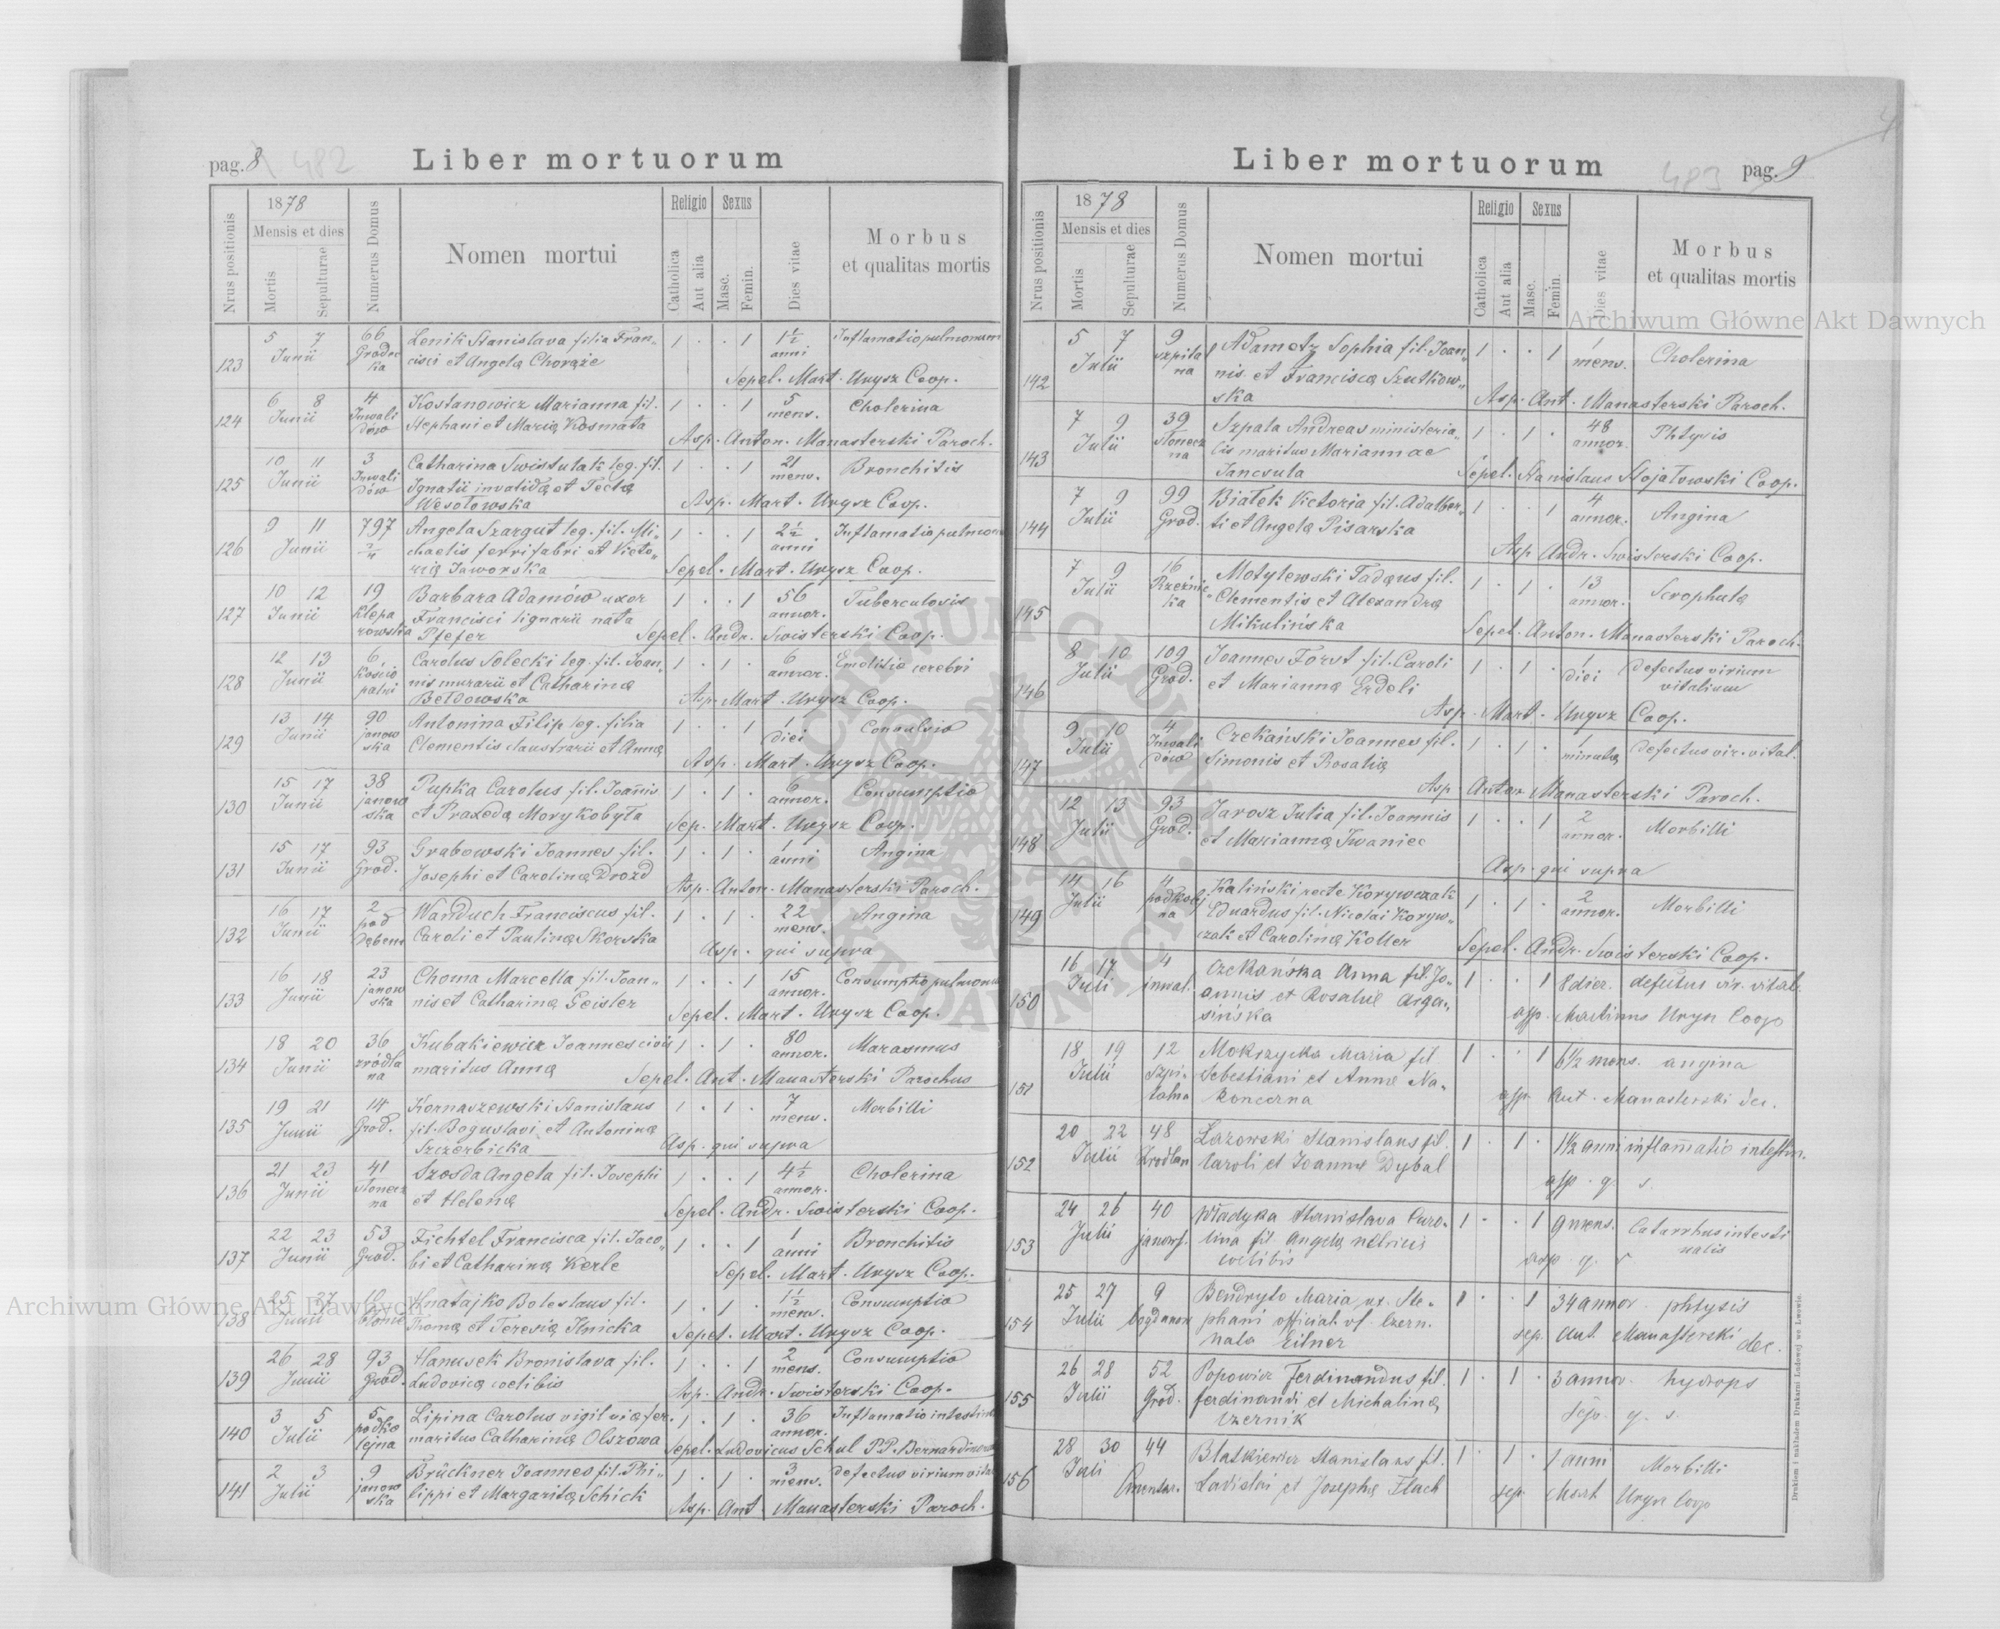 pag. 8 482
Liber mortuorum
Nrus positionis
1878
Mensis et dies
Mortis
Sepulturae
Numerus Domus
Nomen mortui
Religio
Catholica
Aut alia
Sexus
Masc.
Femin.
Dies vitae
Morbus
et qualitas mortis
123 5 7 Junii 66 Grodec ka
Lenik Stanislava filia Fran-
cisci et Angela Chorąże
1 . . 1 1½ anni Inflamatio pulmonum
Sepel. Mart. Urysz Coop.
124 6 8 Junii 4 Inwali dów
Kostanowicz Marianna fil.
Stephani et Maria Kosmata
1 . . 1 5 mens. Cholerina
Asp. Anton. Manasterski Paroch.
125 10 11 Junii 3 Inwali dów
Catharina Swistulak leg. fil.
Ignatii invalida et Tecla
Wesołowska
1 . . 1 21 mens. Bronchitis
Asp. Mart. Urysz Coop.
126 9 11 Junii 797 2/4
Angela Szargut leg. fil. Mi-
chaelis ferrifabri et Victo-
ria Jaworska
1 . . 1 2½ anni Inflamatio pulmon
Sepel. Mart. Urysz Coop.
127 10 12 Junii 19 Klepa rowska
Barbara Adamów uxor
Francisci lignarii nata
Pfefer
1 . . 1 56 annor. Tuberculosis
Sepel. Andr. Swisterski Coop.
128 12 13 Junii 6 Kościo palni
Carolus Solecki leg. fil. Joan-
nis murarii et Catharina
Bełdowska
1 . 1 . 6 annor. Emolitio cerebri
Asp. Mart. Urysz Coop.
129 13 14 Junii 90 janow ska
Antonina Filip leg. filia
Clementis claustrarii et Anna
1 . . 1 1 diei Convulsio
Asp. Mart. Urysz Coop.
130 15 17 Junii 38 janow ska
Pupka Carolus fil. Joannis
et Praxeda Morykobyła
1 . 1 . 6 annor. Consumptio
Sep. Mart. Urysz Coop.
131 15 17 Junii 93 Grod.
Grabowski Joannes fil.
Josephi et Carolina Drozd
1 . 1 . 1 anni Angina
Asp. Anton. Manasterski Paroch.
132 16 17 Junii 2 pod Dębem
Wanduch Franciscus fil.
Caroli et Paulina Skorska
1 . 1 . 22 mens. Angina
Asp. qui supra
133 16 18 Junii 23 janow ska
Choma Marcella fil. Joan-
nis et Catharina Geisler
1 . . 1 15 annor. Consumptio pulmonum
Sepel. Mart. Urysz Coop.
134 18 20 Junii 36 źródla na
Kubakiewicz Joannes civis
maritus Anna
1 . 1 . 80 annor. Marasmus
Sepel. Ant. Manasterski Parochus
135 19 21 Junii 14 Grod.
Kornaszewski Stanislaus
fil. Boguslavi et Antonina
Szczerbicka
1 . 1 . 7 mens. Morbilli
Asp. qui supra
136 21 23 Junii 41 słonecz na
Szosda Angela fil. Josephi
et Helena
1 . . 1 4½ annor. Cholerina
Sepel. Andr. Swisterski Coop.
137 22 23 Junii 53 Grod.
Fichtel Francisca fil. Jaco-
bi et Catharina Kerle
1 . . 1 1 anni Bronchitis
Sepel. Mart. Urysz Coop.
138 25 27 Junii 10 błonie
Hnatajko Boleslaus fil.
Thoma et Teresia Ilnicka
1 . 1 . 1½ mens. Consumptio
Sepel. Mart. Urysz Coop.
139 26 28 Junii 93 Grod.
Hanusek Bronislava fil.
Ludovica coelibis
1 . . 1 2 mens. Consumptio
Asp. Andr. Swisterski Coop.
140 3 5 Julii 5 podko lejna
Lipina Carolus vigil via fer.
maritus Catharina Olszowa
1 . 1 . 36 annor. Inflamatio intestina
Sepel. Ludovicus Schul P.P. Bernardinorum
141 2 3 Julii 9 janow ska
Brückner Joannes fil. Phi-
lippi et Margarita Schick
1 . 1 . 3 mens. defectus virium vital
Asp. Ant. Manasterski Paroch.
Liber mortuorum
483 pag. 9
Nrus positionis
1878
Mensis et dies
Mortis
Sepulturae
Numerus Domus
Nomen mortui
Religio
Catholica
Aut alia
Sexus
Masc.
Femin.
Dies vitae
Morbus
et qualitas mortis
142 5 7 Julii 9 szpital na
Adametz Sophia fil. Joan-
nis et Francisca Szutkow-
ska
1 . . 1 1 mens. Cholerina
Asp. Ant. Manasterski Paroch.
143 7 9 Julii 39 słonecz na
Szpala Andreas ministeria-
lis maritus Mariannae
Jancsula
1 . 1 . 48 annor. Phtysis
Sepel. Stanislaus Stojałowski Coop.
144 7 9 Julii 99 Grod.
Białek Victoria fil. Adalber-
ti et Angela Pisarska
1 . . 1 4 annor. Angina
Asp. Andr. Swisterski Coop.
145 7 9 Julii 16 Rzeźnic ka
Motylewski Tadaus fil.
Clementis et Alexandra
Mikulińska
1 . 1 . 13 annor. Scrophula
Sepel. Anton. Manasterski Paroch.
146 8 10 Julii 109 Grod.
Joannes Forst fil. Caroli
et Marianna Erdeli
1 . 1 . 1 diei Defectus virium
vitalium
Asp. Mart. Urysz Coop.
147 9 10 Julii 4 Inwali dów
Czekański Joannes fil.
Simonis et Rosalia
1 . 1 . 1 minuta Defectus vir. vital.
Asp. Anton Manasterski Paroch.
148 12 13 Julii 93 Grod.
Jarosz Julia fil. Joannis
et Marianna Iwaniec
1 . . 1 2 annor. Morbilli
Asp. qui supra
149 14 16 Julii 4 podkolej na
Kaliński recte Korywczak
Eduardus fil. Nicolai Koryw-
czak et Carolina Koller
1 . 1 . 2 annor. Morbilli
Sepel. Andr. Swisterski Coop.
150 16 17 Juli 4 inwal.
Czekańska Anna fil. Jo-
annis et Rosaliae Arga-
sińska
1 . . 1 8 dier. defectus vir. vital.
asp. Martinus Urysz Coop
151 18 19 Julii 12 Szpi- talna
Mokrzycka Maria fil
Sebestiani et Annae Na-
koneczna
1 . . 1 6½ mens. angina
asp. Ant. Manasterski dec.
152 20 22 Julii 48 Zrodlan
Lazowski Stanislaus fil.
Caroli et Joanna Dybal
1 . 1 . 1½ anni inflammatio intestin.
asp. q. s.
153 24 26 Julii 40 janows.
Władyka Stanislava Caro-
lina fil. Angela nutricis
coelibis
1 . . 1 9 mens. Catarrhus intesti
nalis
asp q. s
154 25 27 Julii 9 bogdanow
Bendryło Maria ux. Ste-
phani official. of. Czern.
nata Eitner
1 . . 1 34 annor. phtysis
sep. Ant. Manasterski dec.
155 26 28 Julii 52 Grod.
Popowicz Ferdinandus fil.
Ferdinandi et Michalina
Czernik
1 . 1 . 3 annor. hydrops
sep. q. s.
156 28 30 Juli 44 Cmentar.
Blatkiewicz Stanislaus fil.
Ladislai et Josepha Flach
1 . 1 . 1 anni Morbilli
sep. Mart Urysz Coop
Drukiem i nakładem Drukarni Ludowej we Lwowie.
Archiwum Główne Akt Dawnych
Archiwum Główne Akt Dawnych
ARCHIWUM GŁÓWNE AKT DAWNYCH